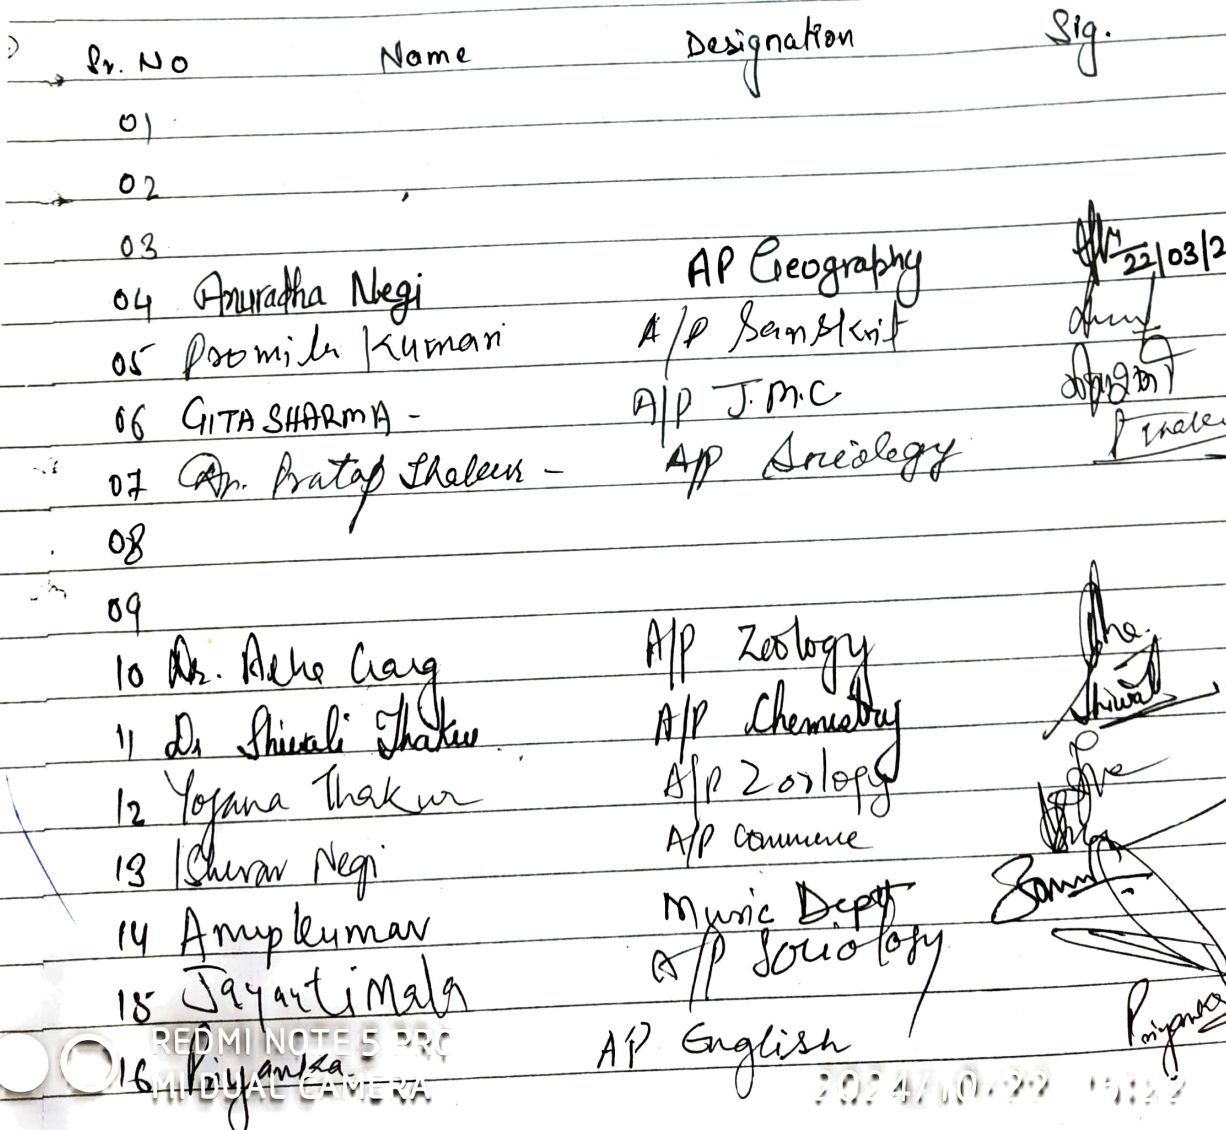 Sr. No Name Designation Sig.
01
02
03
04 Anuradha Negi AP Geography 22/03/2
05 Promila Kumari A/P Sanskrit
06 GITA SHARMA - A/P J.M.C.
07 Dr. Pratap Thakur - A/P Sociology
08
09
10 Dr. Alka Garg A/P Zoology
11 Dr Shiwali Thakur A/P Chemistry Shiwali
12 Yojana Thakur A/P Zoology
13 Ishwar Negi A/P Commerce
14 Anup Kumar Music Deptt
15 Jayanti Mala A/P Sociology
16 Priyanka AP English Priyanka
REDMI NOTE 5 PRO
MI DUAL CAMERA
2024/10/22